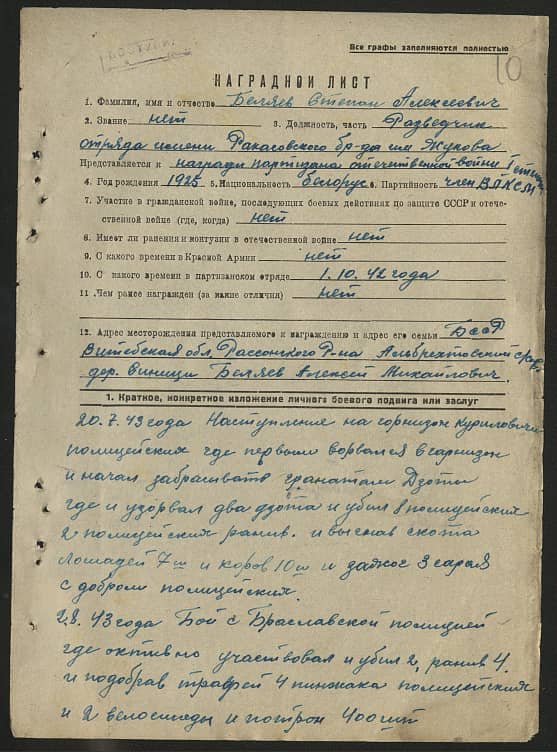 Все графы заполняются полностью
10
НАГРАДНОЙ ЛИСТ
1. Фамилия, имя и отчество Беляев Степан Алексеевич
2. Звание нет 3. Должность, часть Разведчик
отряда имени Ракасовского бр-ды им Жукова
Представляется к награди партизана отечественной войни 1 степ
4. Год рождения 1925 5. Национальность белорус 6. Партийность член ВЛКСМ
7. Участие в гражданской войне, последующих боевых действиях по защите СССР и отече-
ственной войне (где, когда) нет
8. Имеет ли ранения и контузии в отечественной войне нет
9. С какого времени в Красной Армии нет
10. С какого времени в партизанском отряде 1.10.42 года
11. Чем ранее награжден (за какие отличия) нет
12. Адрес месторождения представляемого к награждению и адрес его семьи БССР
Витебская обл. Россонкого Р-на Альбрехтовский с/сов.
дер. Виници Беляев Алексей Михайлович.
1. Краткое, конкретное изложение личного боевого подвига или заслуг
20.7.43 года Наступление на горнизон Куриловичи
полицейских где первым ворвался в гарнизон
и начал забрасывать гранатам Дзоты
где и узорвал два дзота и убил 8 полицейских
2 полицейских ранив. и выгнав скота
Лошадей 7ш и коров 10ш и зажог 3 сарая
с добром полицейских.
2.8.43 года Бой с Браславской полицией
где октивно участвовал и убил 2, ранив 4.
и подобрав трафей 4 пинжака полицейских
и 2 велосипеды и потрон 400 шт